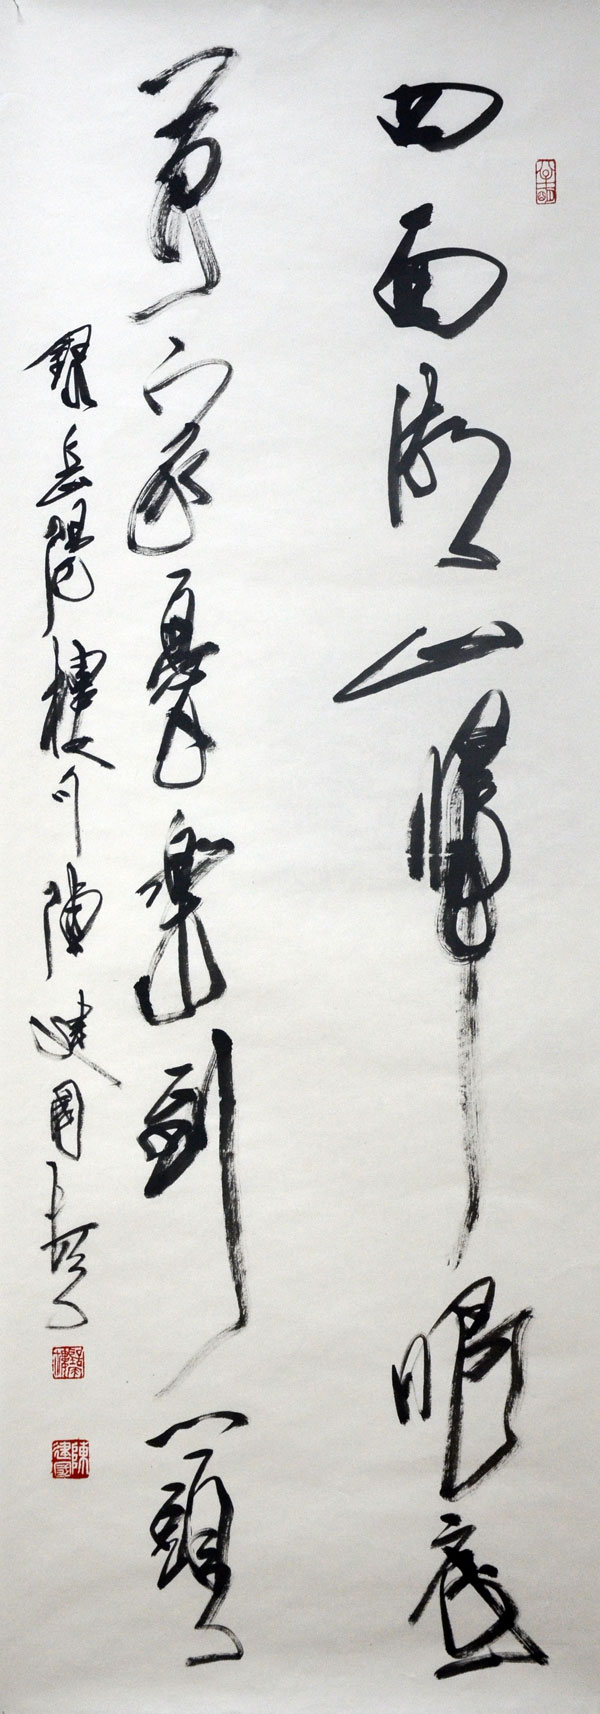 四面湖山歸眼底
萬家憂樂到心頭
錄岳陽樓句 陳建國
陳建國